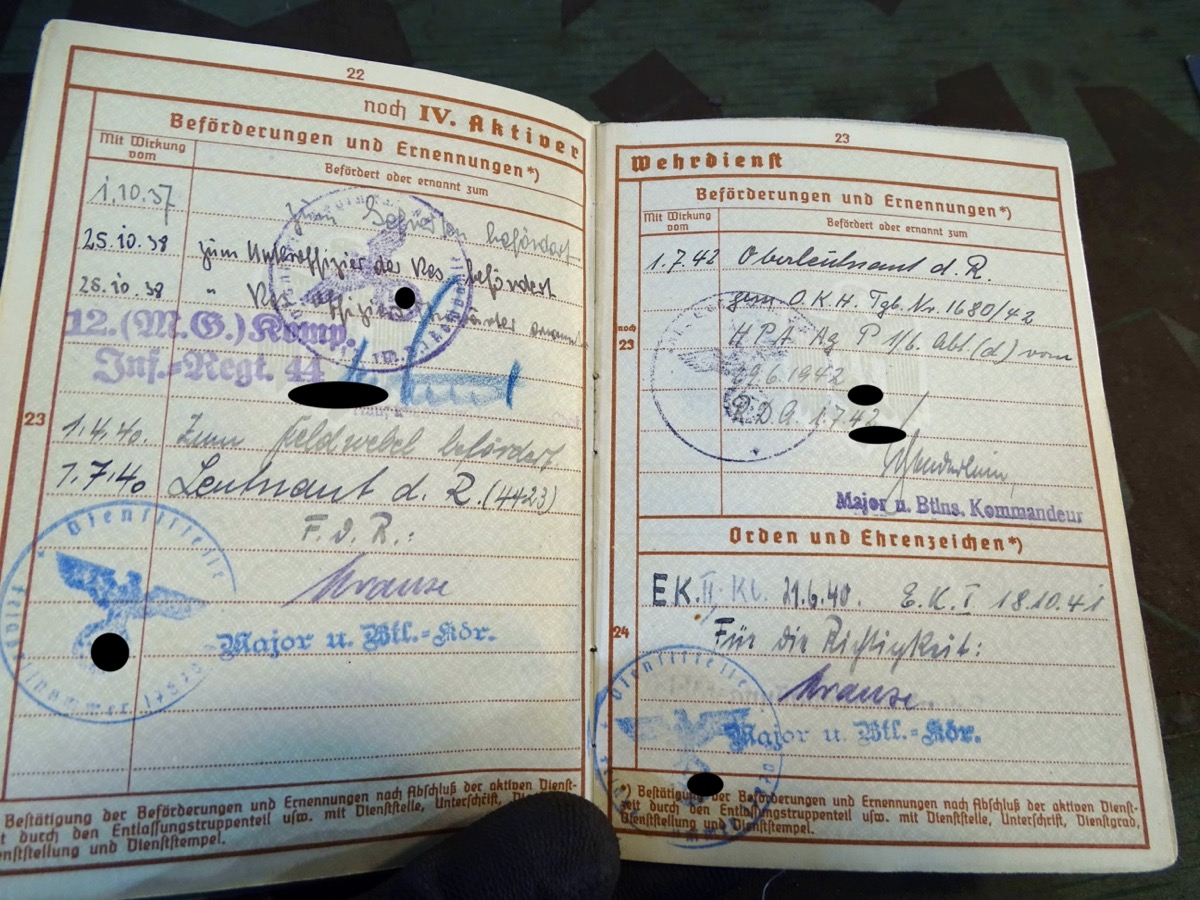 22
noch IV. Aktiver
Beförderungen und Ernennungen*)
Mit Wirkung vom
Befördert oder ernannt zum
1.10.37 zum Gefreiten befördert
25.10.38 zum Unteroffizier der Res. befördert
26.10.38 " Res
12.(M.G.)Komp.
Inf.=Regt. 44
23
1.4.40. Zum Feldwebel befördert
1.7.40 Leutnant d. R. (4423)
F. d. R.:
Krause
Dienststelle
Feldpostnummer
Major u. Btl.=Kdr.
Bestätigung der Beförderungen und Ernennungen nach Abschluß der aktiven Dienst-
it durch den Entlassungstruppenteil usw. mit Dienststelle, Unterschrift,
enststellung und Dienststempel.
23
Wehrdienst
Beförderungen und Ernennungen*)
Mit Wirkung vom
Befördert oder ernannt zum
1.7.42 Oberleutnant d. R.
gem O.K.H. Tgb. Nr. 1680/42
noch 23
H P A Ag P 1/6. Abt (d) vom
29.6.1942
R.D.A. 1.7.42
Major u. Btlns. Kommandeur
Orden und Ehrenzeichen*)
EK. II. Kl. 21.6.40. E.K. I 18.10.41
24
Für die Richtigkeit:
Krause.
Dienststelle
Major u. Btl.=Kdr.
*) Bestätigung der Beförderungen und Ernennungen nach Abschluß der aktiven Dienst-
zeit durch den Entlassungstruppenteil usw. mit Dienststelle, Unterschrift, Dienstgrad,
Dienststellung und Dienststempel.